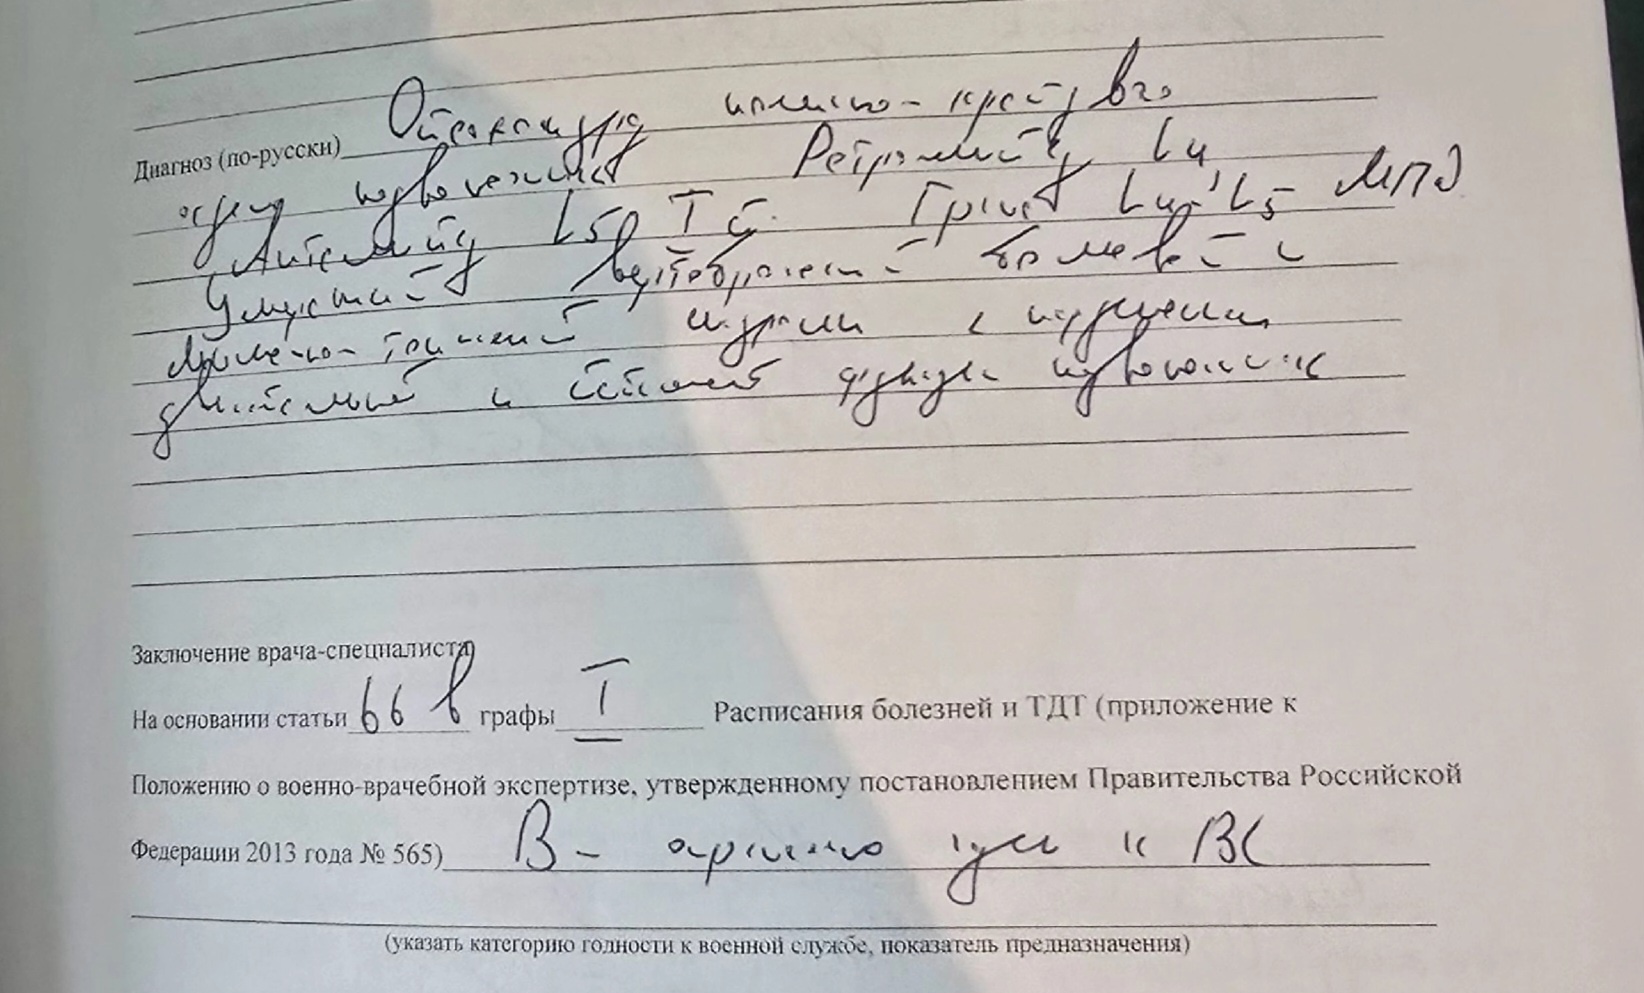 Диагноз (по-русски) Остеохондроз пояснично-крестцового
отдела позвоночника Ретролистез L4
Антелистез L5 I ст. Грыжа L4-L5 МПД
Умеренный вертеброгенный болевой и
мышечно-тонический с нарушением
и статической функции позвоночника
Заключение врача-специалиста
На основании статьи 66 в графы I Расписания болезней и ТДТ (приложение к
Положению о военно-врачебной экспертизе, утвержденному постановлением Правительства Российской
Федерации 2013 года № 565) В - ограничено годен к ВС
(указать категорию годности к военной службе, показатель предназначения)